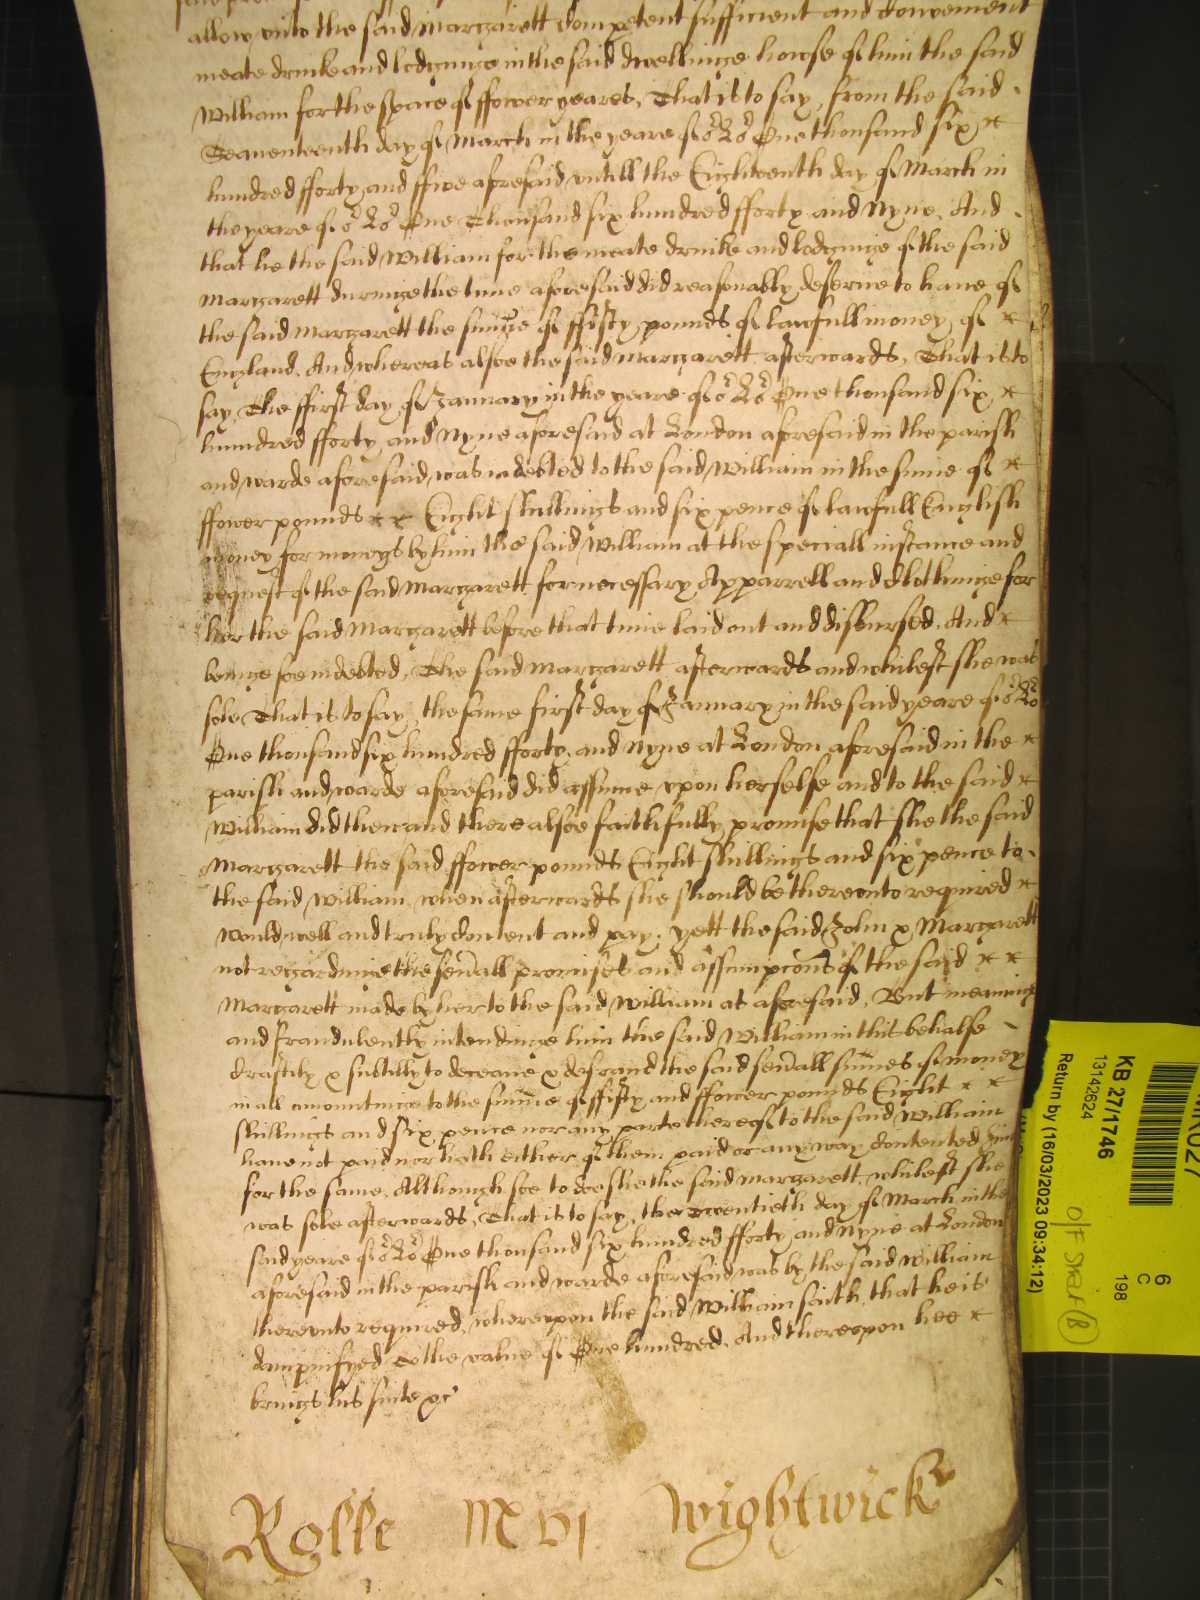 allow vnto the said Margarett Competent sufficient and Convenient
meate drinke and lodgeinge in the said dwellinge howse of him the said
William for the space of ffower yeares, That is to say, from the said
Seaventeenth day of March in the yeare of or Lord One thousand six
hundred fforty and ffive aforesaid vntill the Eighteenth day of March in
the yeare of or Lord One Thousand six hundred fforty and Nyne, And
that he the said William for the meate drinke and lodgeinge of the said
Margarett duringe the time aforesaid did reasonably deserve to have of
the said Margarett the sume of ffifty pounds of lawfull money of
England. And whereas alsoe the said Margarett afterwards, That is to
say, The ffirst day of January in the yeare of or Lord One thousand six
hundred fforty and Nyne aforesaid at London aforesaid in the parish
and warde aforesaid was indebted to the said William in the sume of
ffower pounds Eight shillings and six pence of lawfull English
money for moneys by him the said William at the speciall instance and
request of the said Margarett for necessary Apparrell and Clothinge for
her the said Margarett before that time laid out and disbursed. And
beinge soe indebted, The said Margarett afterwards and whilest she was
sole That is to say, the same first day of January in the said yeare of or Lord
One thousand six hundred fforty and Nyne at London aforesaid in the
parish and warde aforesaid did assume vpon herselfe and to the said
William did then and there alsoe faithfully promise that she the said
Margarett the said ffower pounds Eight shillings and six pence to
the said William, when afterwards she should be therevnto required
Would well and truly Content and pay; yett the said John & Margarett
not regardinge the sevall promises and assumpcons of the said
Margarett made by her to the said William as aforesaid, But meaninge
and fraudulently intendinge him the said William in this behalfe
Craftily & subtilly to deceave & defraud the said sevall sumes of money
in all amountinge to the sume of ffifty and ffower pounds Eight
shillings and six pence nor any parte thereof to the said William
have not paid nor hath either of them paid or any way Contented him
for the same. Although soe to doe she the said Margarett, whilest she
was sole afterwards, That is to say, the twentieth day of March in the
said yeare of or Lord One thousand six hundred fforty and Nyne at London
aforesaid in the parish and warde aforesaid was by the said William
therevnto required, wherevpon the said William saith, that he is
dampnifyed to the value of One hundred. And therevpon hee
brings his suite &c
Rolle MVI Wightwick
KB 27/1746
13142624
Return by (16/03/2023 09:34:12)
6
C
198